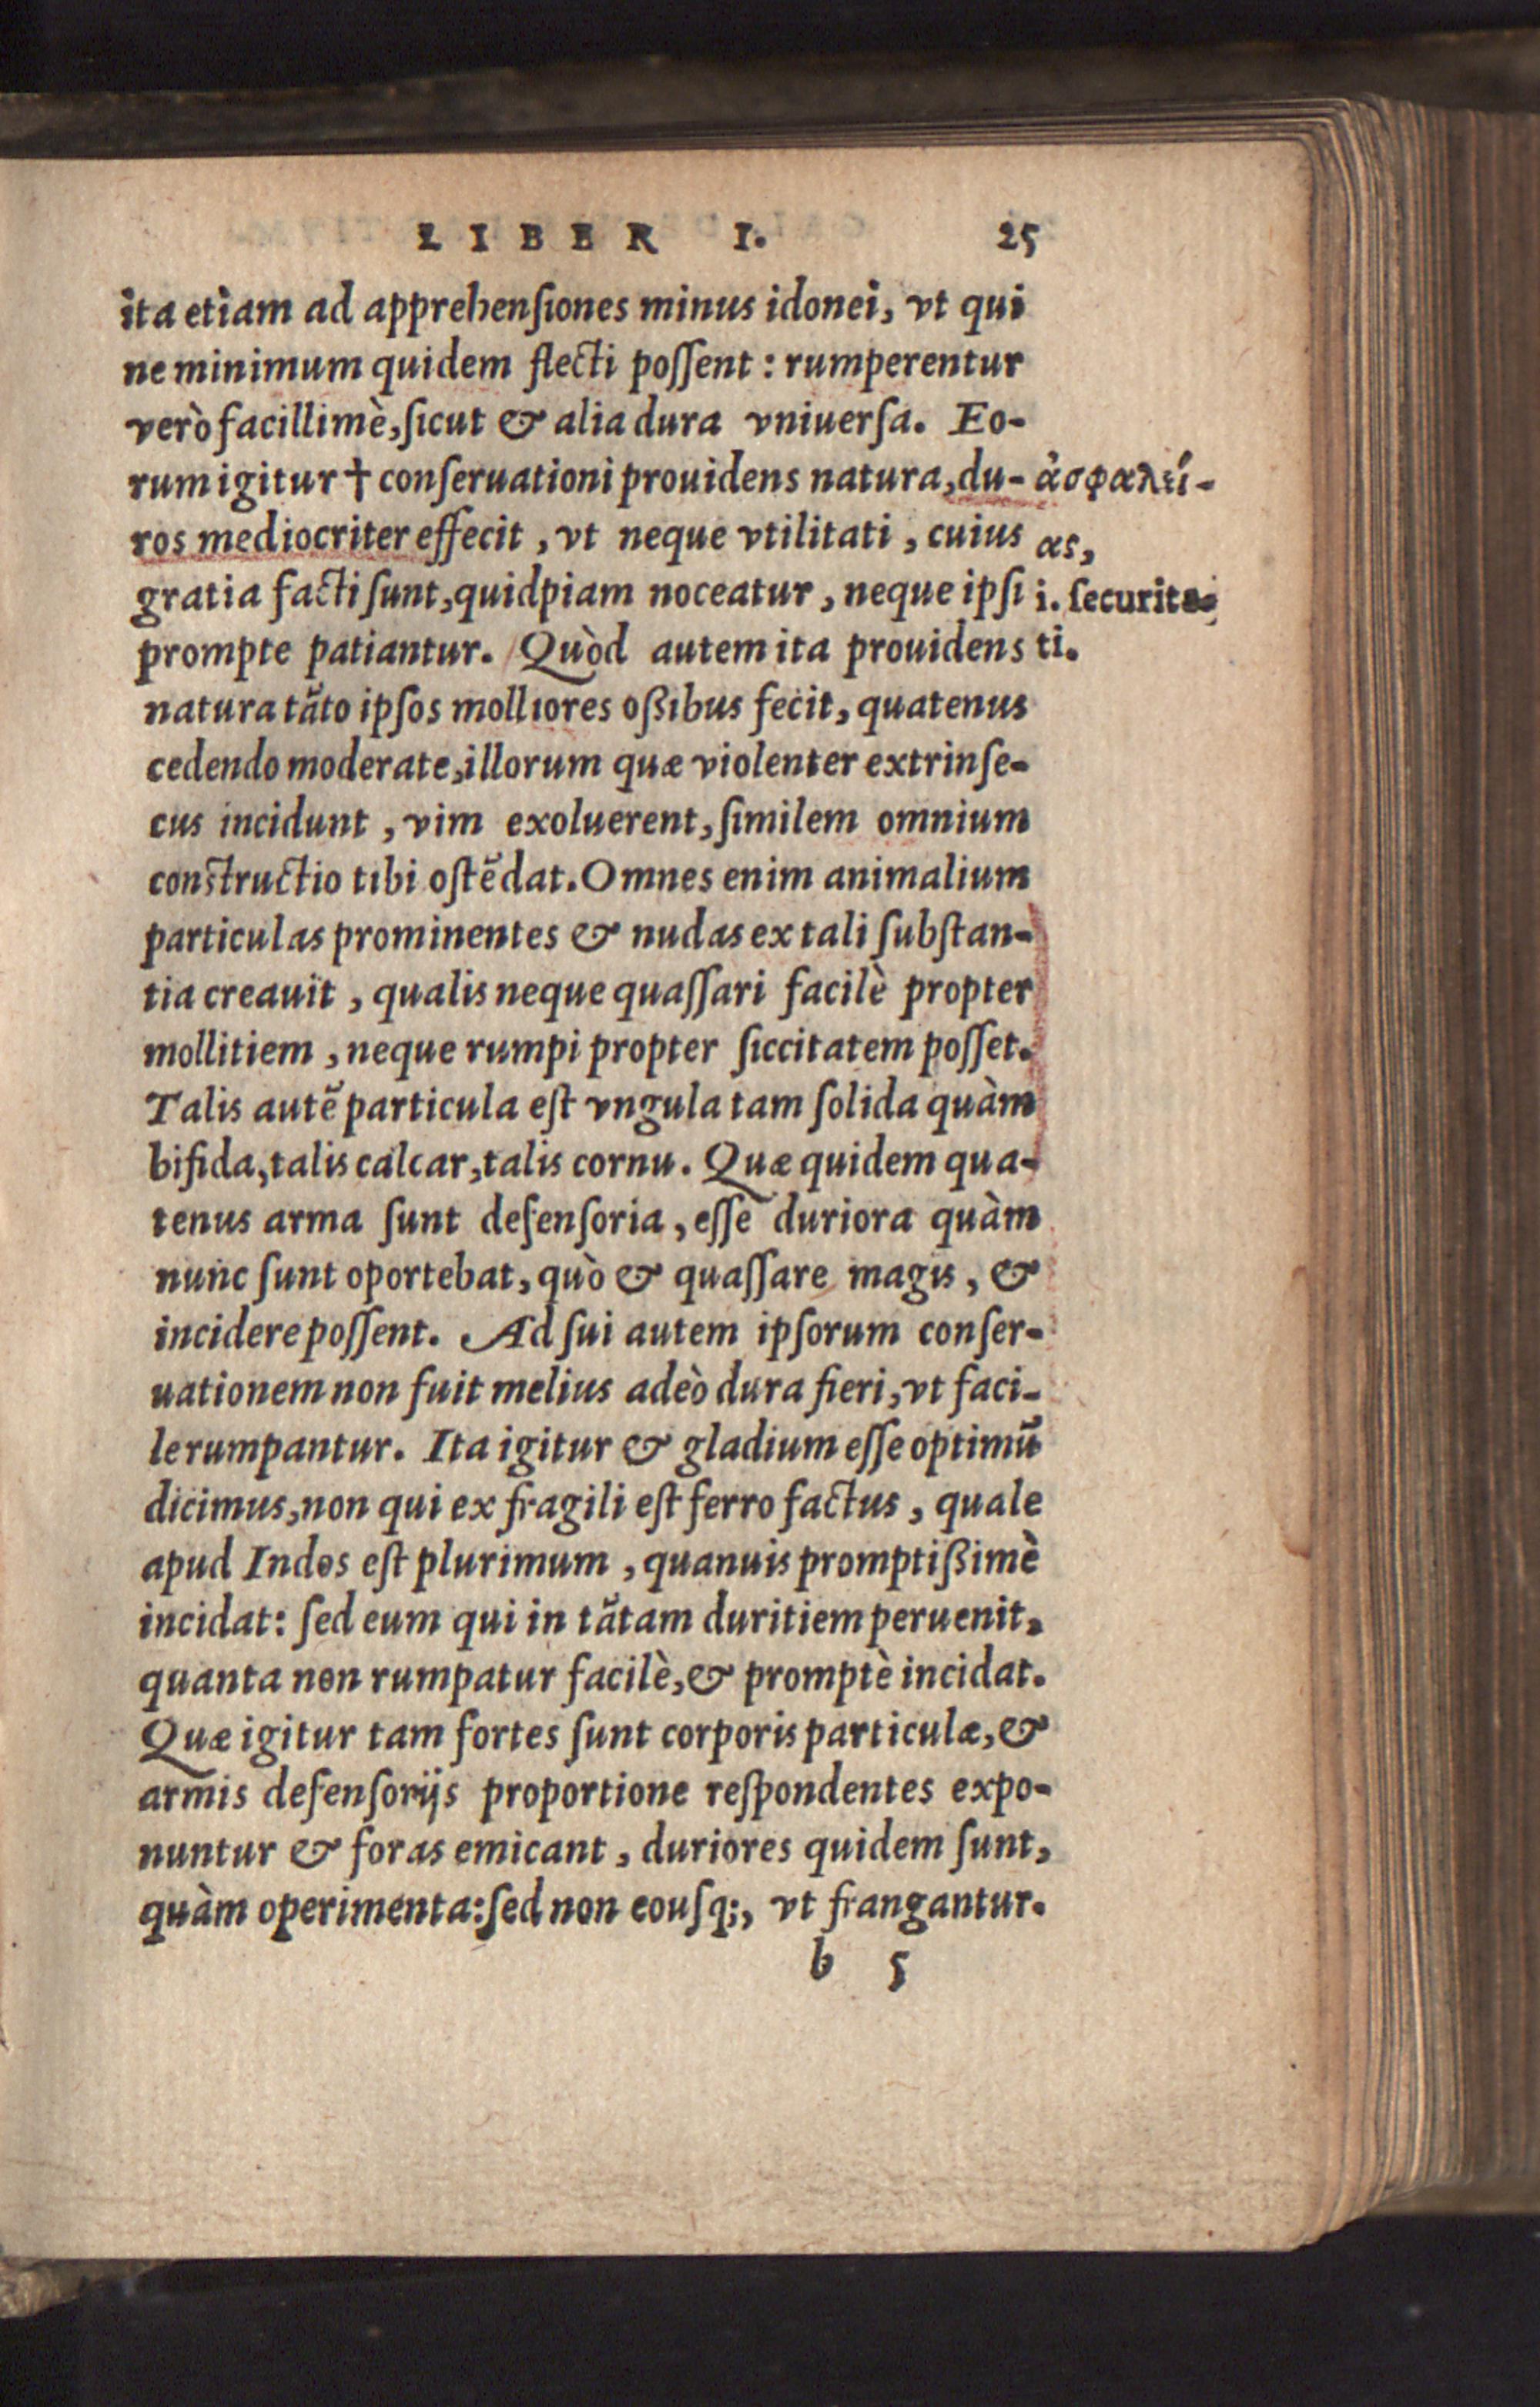 LIBER I. 25
ita etiam ad apprehenſiones minus idonei, vt qui
ne minimum quidem flecti poſſent: rumperentur
verò facillimè, ſicut & alia dura vniuerſa. Eo-
rum igitur † conſeruationi prouidens natura, du-
ros mediocriter effecit, vt neque vtilitati, cuius
gratia facti ſunt, quidpiam noceatur, neque ipſi
prompte patiantur. Quòd autem ita prouidens
natura tãto ipſos molliores oßibus fecit, quatenus
cedendo moderate, illorum quæ violenter extrinſe-
cus incidunt, vim exoluerent, ſimilem omnium
conſtructio tibi oſtẽdat. Omnes enim animalium
particulas prominentes & nudas ex tali ſubſtan-
tia creauit, qualis neque quaſſari facilè propter
mollitiem, neque rumpi propter ſiccitatem poſſet.
Talis autẽ particula eſt vngula tam ſolida quàm
bifida, talis calcar, talis cornu. Quæ quidem qua-
tenus arma ſunt defenſoria, eſſe duriora quàm
nunc ſunt oportebat, quò & quaſſare magis, &
incidere poſſent. Ad ſui autem ipſorum conſer-
uationem non fuit melius adeò dura fieri, vt faci-
le rumpantur. Ita igitur & gladium eſſe optimũ
dicimus, non qui ex fragili eſt ferro factus, quale
apud Indos eſt plurimum, quanuis promptißimè
incidat: ſed eum qui in tãtam duritiem peruenit,
quanta non rumpatur facilè, & promptè incidat.
Quæ igitur tam fortes ſunt corporis particulæ, &
armis defenſorijs proportione reſpondentes expo-
nuntur & foras emicant, duriores quidem ſunt,
quàm operimenta: ſed non eouſq;, vt frangantur.
b 5
ἀσφαλεί-
ας,
i. ſecurita-
ti.